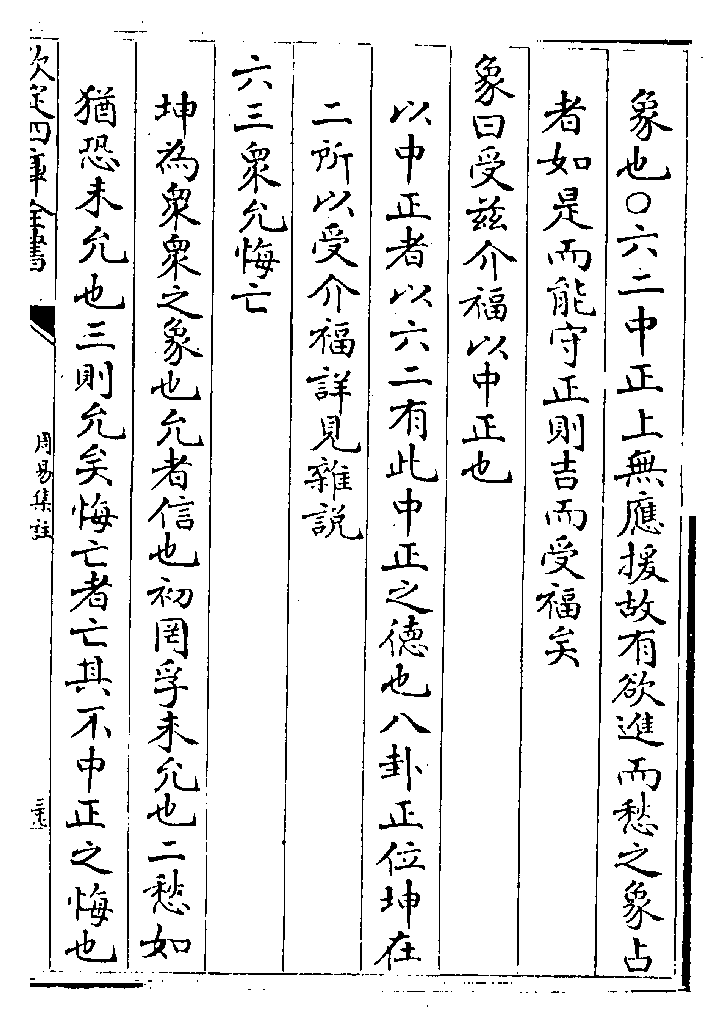 象也○六二中正上無應援故有欲進而愁之象占
者如是而能守正則吉而受福矣
象曰受兹介福以中正也
以中正者以六二有此中正之德也八卦正位坤在
二所以受介福詳見雜説
六三衆允悔亡
坤為衆衆之象也允者信也初罔孚未允也二愁如
猶恐未允也三則允矣悔亡者亡其不中正之悔也
欽定四庫全書
周易集註